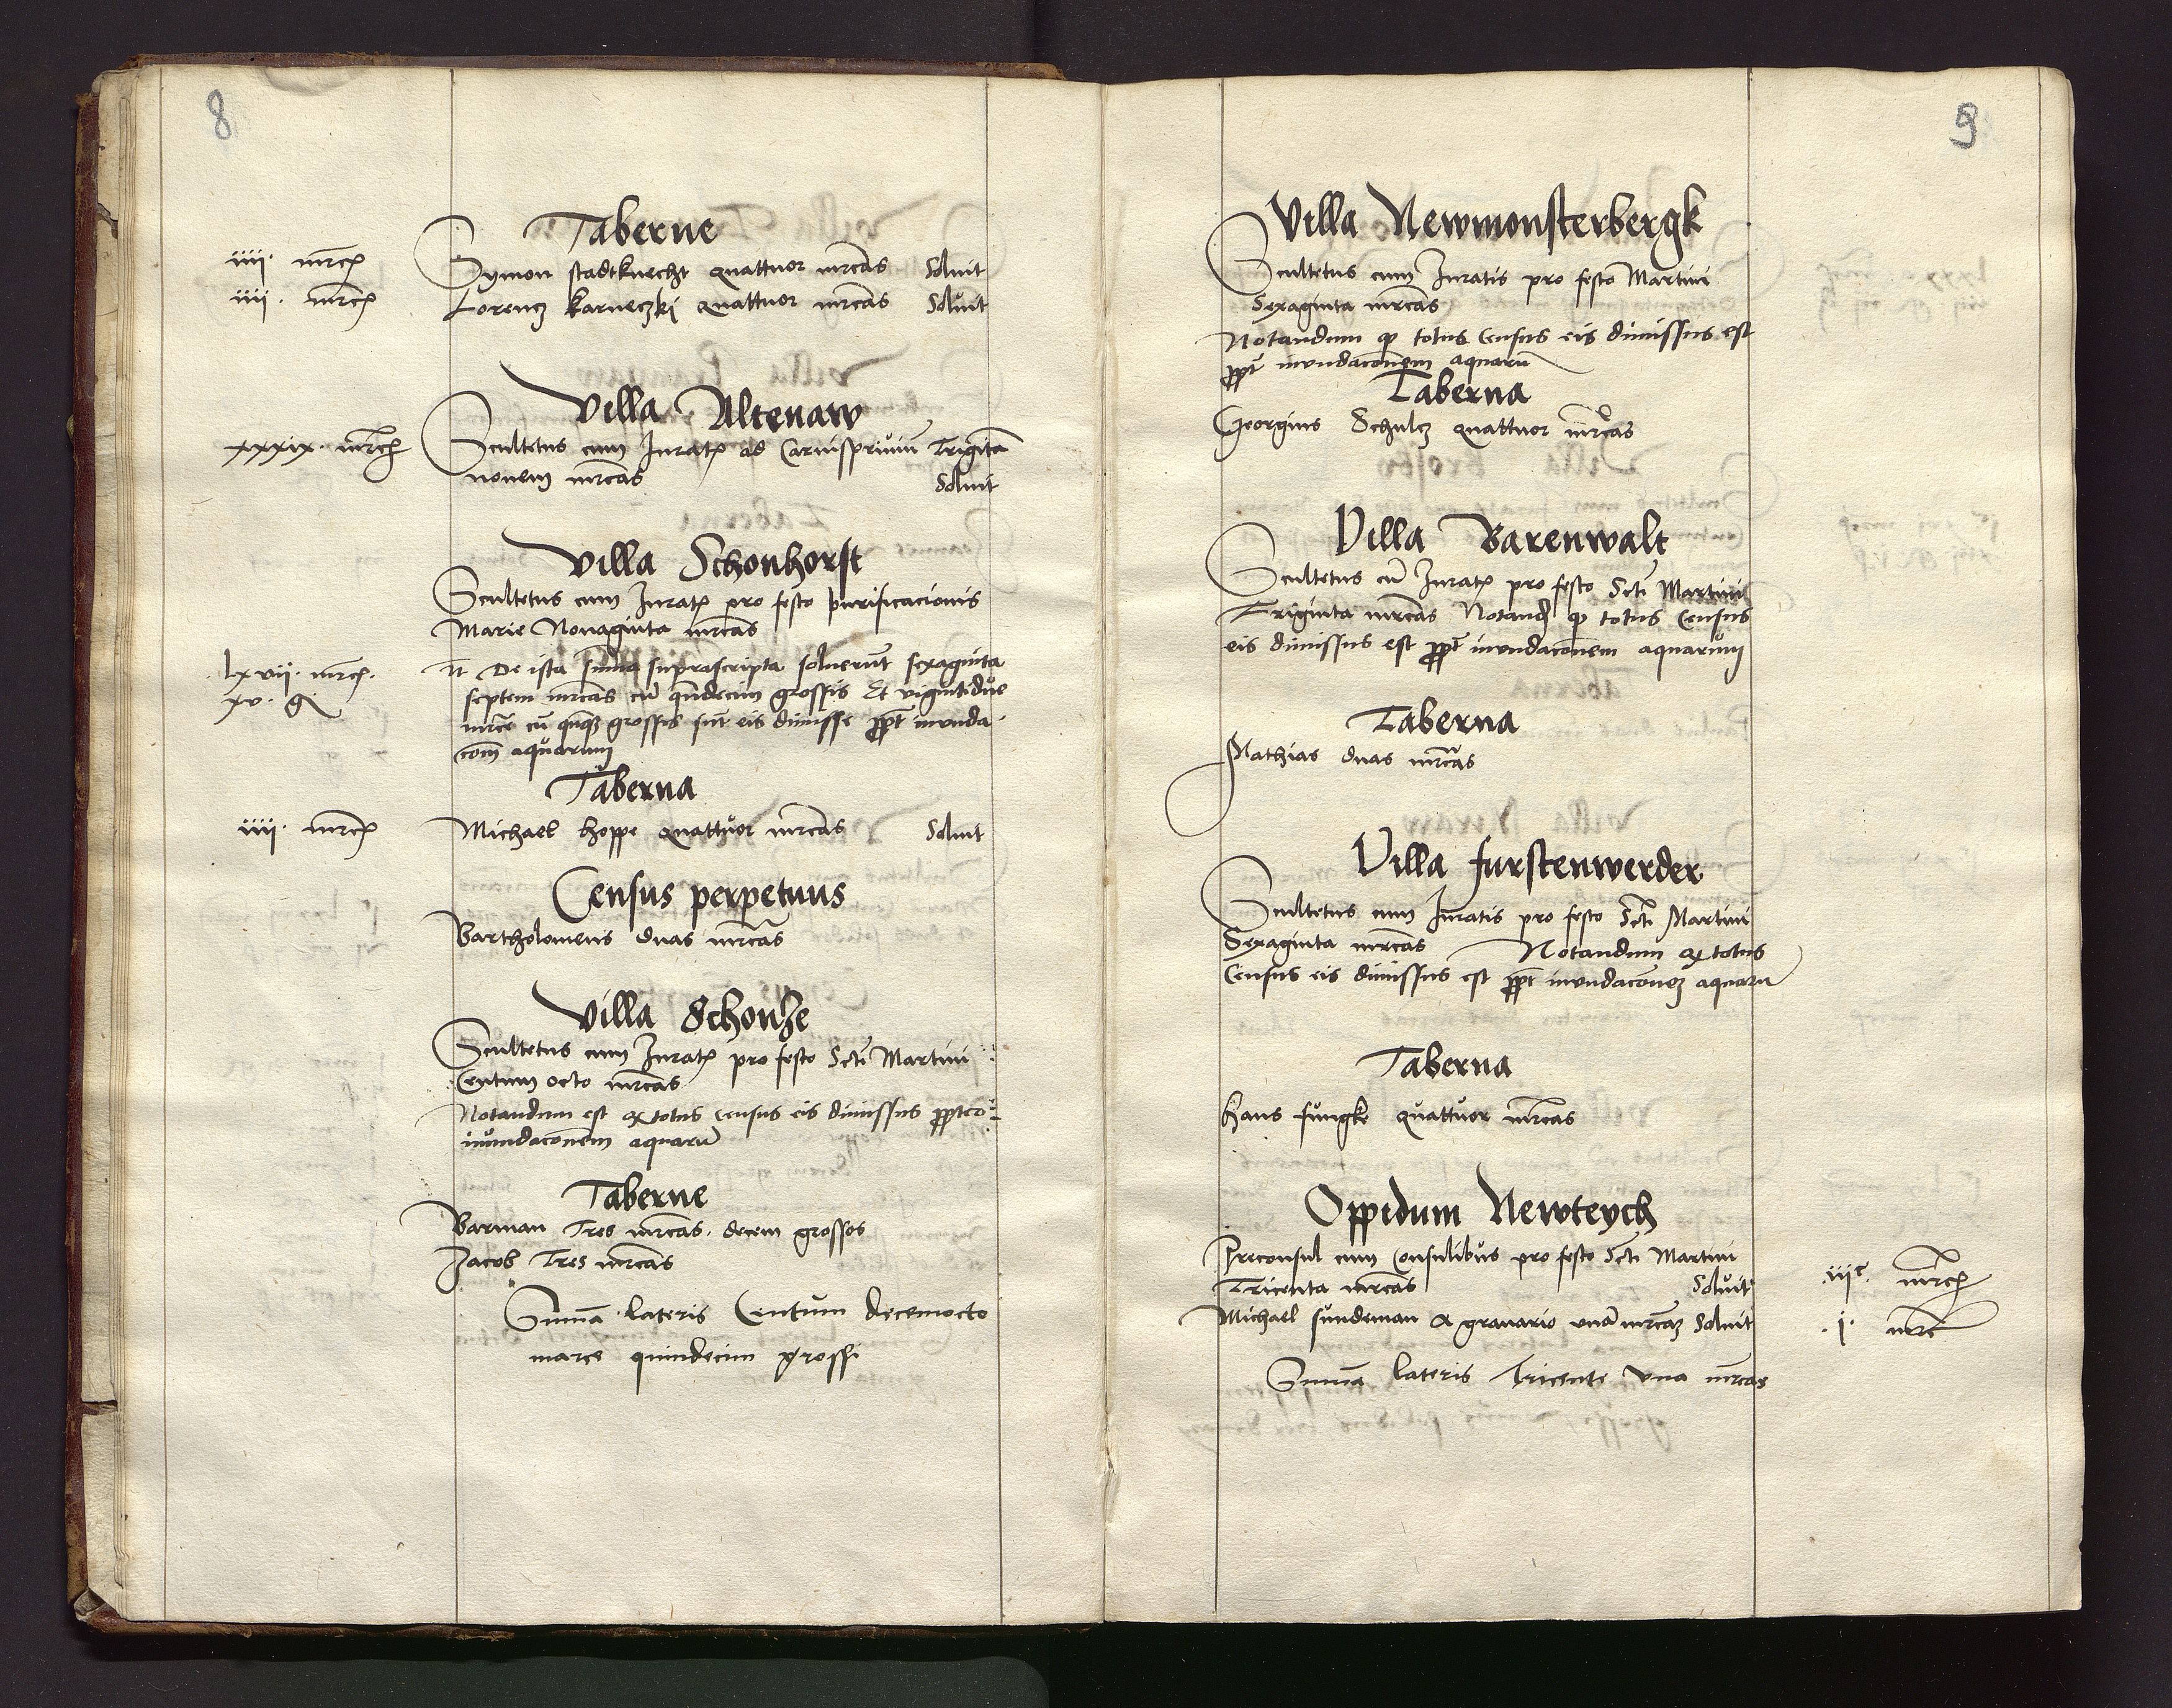 8
Taberne
iiii. mrcas Symon stadtknecht quattuor mrcas Soluit
iiii. mrcas Lorencz karneczki quattuor mrcas Soluit
Villa Altenaw
xxxix. mrcas Scultetus cum Iuratis ad Carnispriuiũ Trigĩta
nouem mrcas Soluit
Villa Schonhorst
Scultetus cum Iuratis pro festo purificacionis
Marie Nonaginta mrcas
lxvii. mrc. Nt De ista suma suprascripta soluerũt sexaginta
xv. g septem mrcas cũ qundecim grossis Et vigintidue
mrce cũ qnqz grossis sũt eis dimisse ppt inunda-
com aquarum
Taberna
iiii. mrcas Michael hoppe quattuor mrcas Soluit
Census perpetuus
Bartholomeus duas mrcas
Villa Schonße
Scultetus cum Iuratis pro festo Scti Martini
Centum octo mrcas
Notandum est q totus census eis dimissus ppter
inundaconem aquarũ
Taberne
Barman Tres mrcas. decem grossos
Jacob Tres mrcas
Suma lateris Centum decemocto
marce quindecim grossi
9
Villa Newmonsterbergk
Scultetus cum Iuratis pro festo Martini
Sexaginta mrcas
Notandum q totus Census eis dimissus est
ppt inundaconem aquarũ
Taberna
Georgius Schulcz quattuor mrcas
Villa Barenwalt
Scultetus cũ Iuratis pro festo Scti Martini
Triginta mrcas Notand q totus Census
eis dimissus est ppt inundaconem aquarum
Taberna
Mathias duas mrcas
Villa furstenwerder
Scultetus cum Iuratis pro festo Scti Martini
Sexaginta mrcas Notandum q totus
Census eis dimissus est ppt inundaconez aquarũ
Taberna
hans fungke quattuor mrcas
Oppidum Newteych
Preconsul cum Consulibus pro festo Scti Martini
Tricenta mrcas Soluit iiic. mrcas
Michael sundeman a granario vnã mrcaz Soluit .i. mrc
Suma lateris Tricente vna mrcas